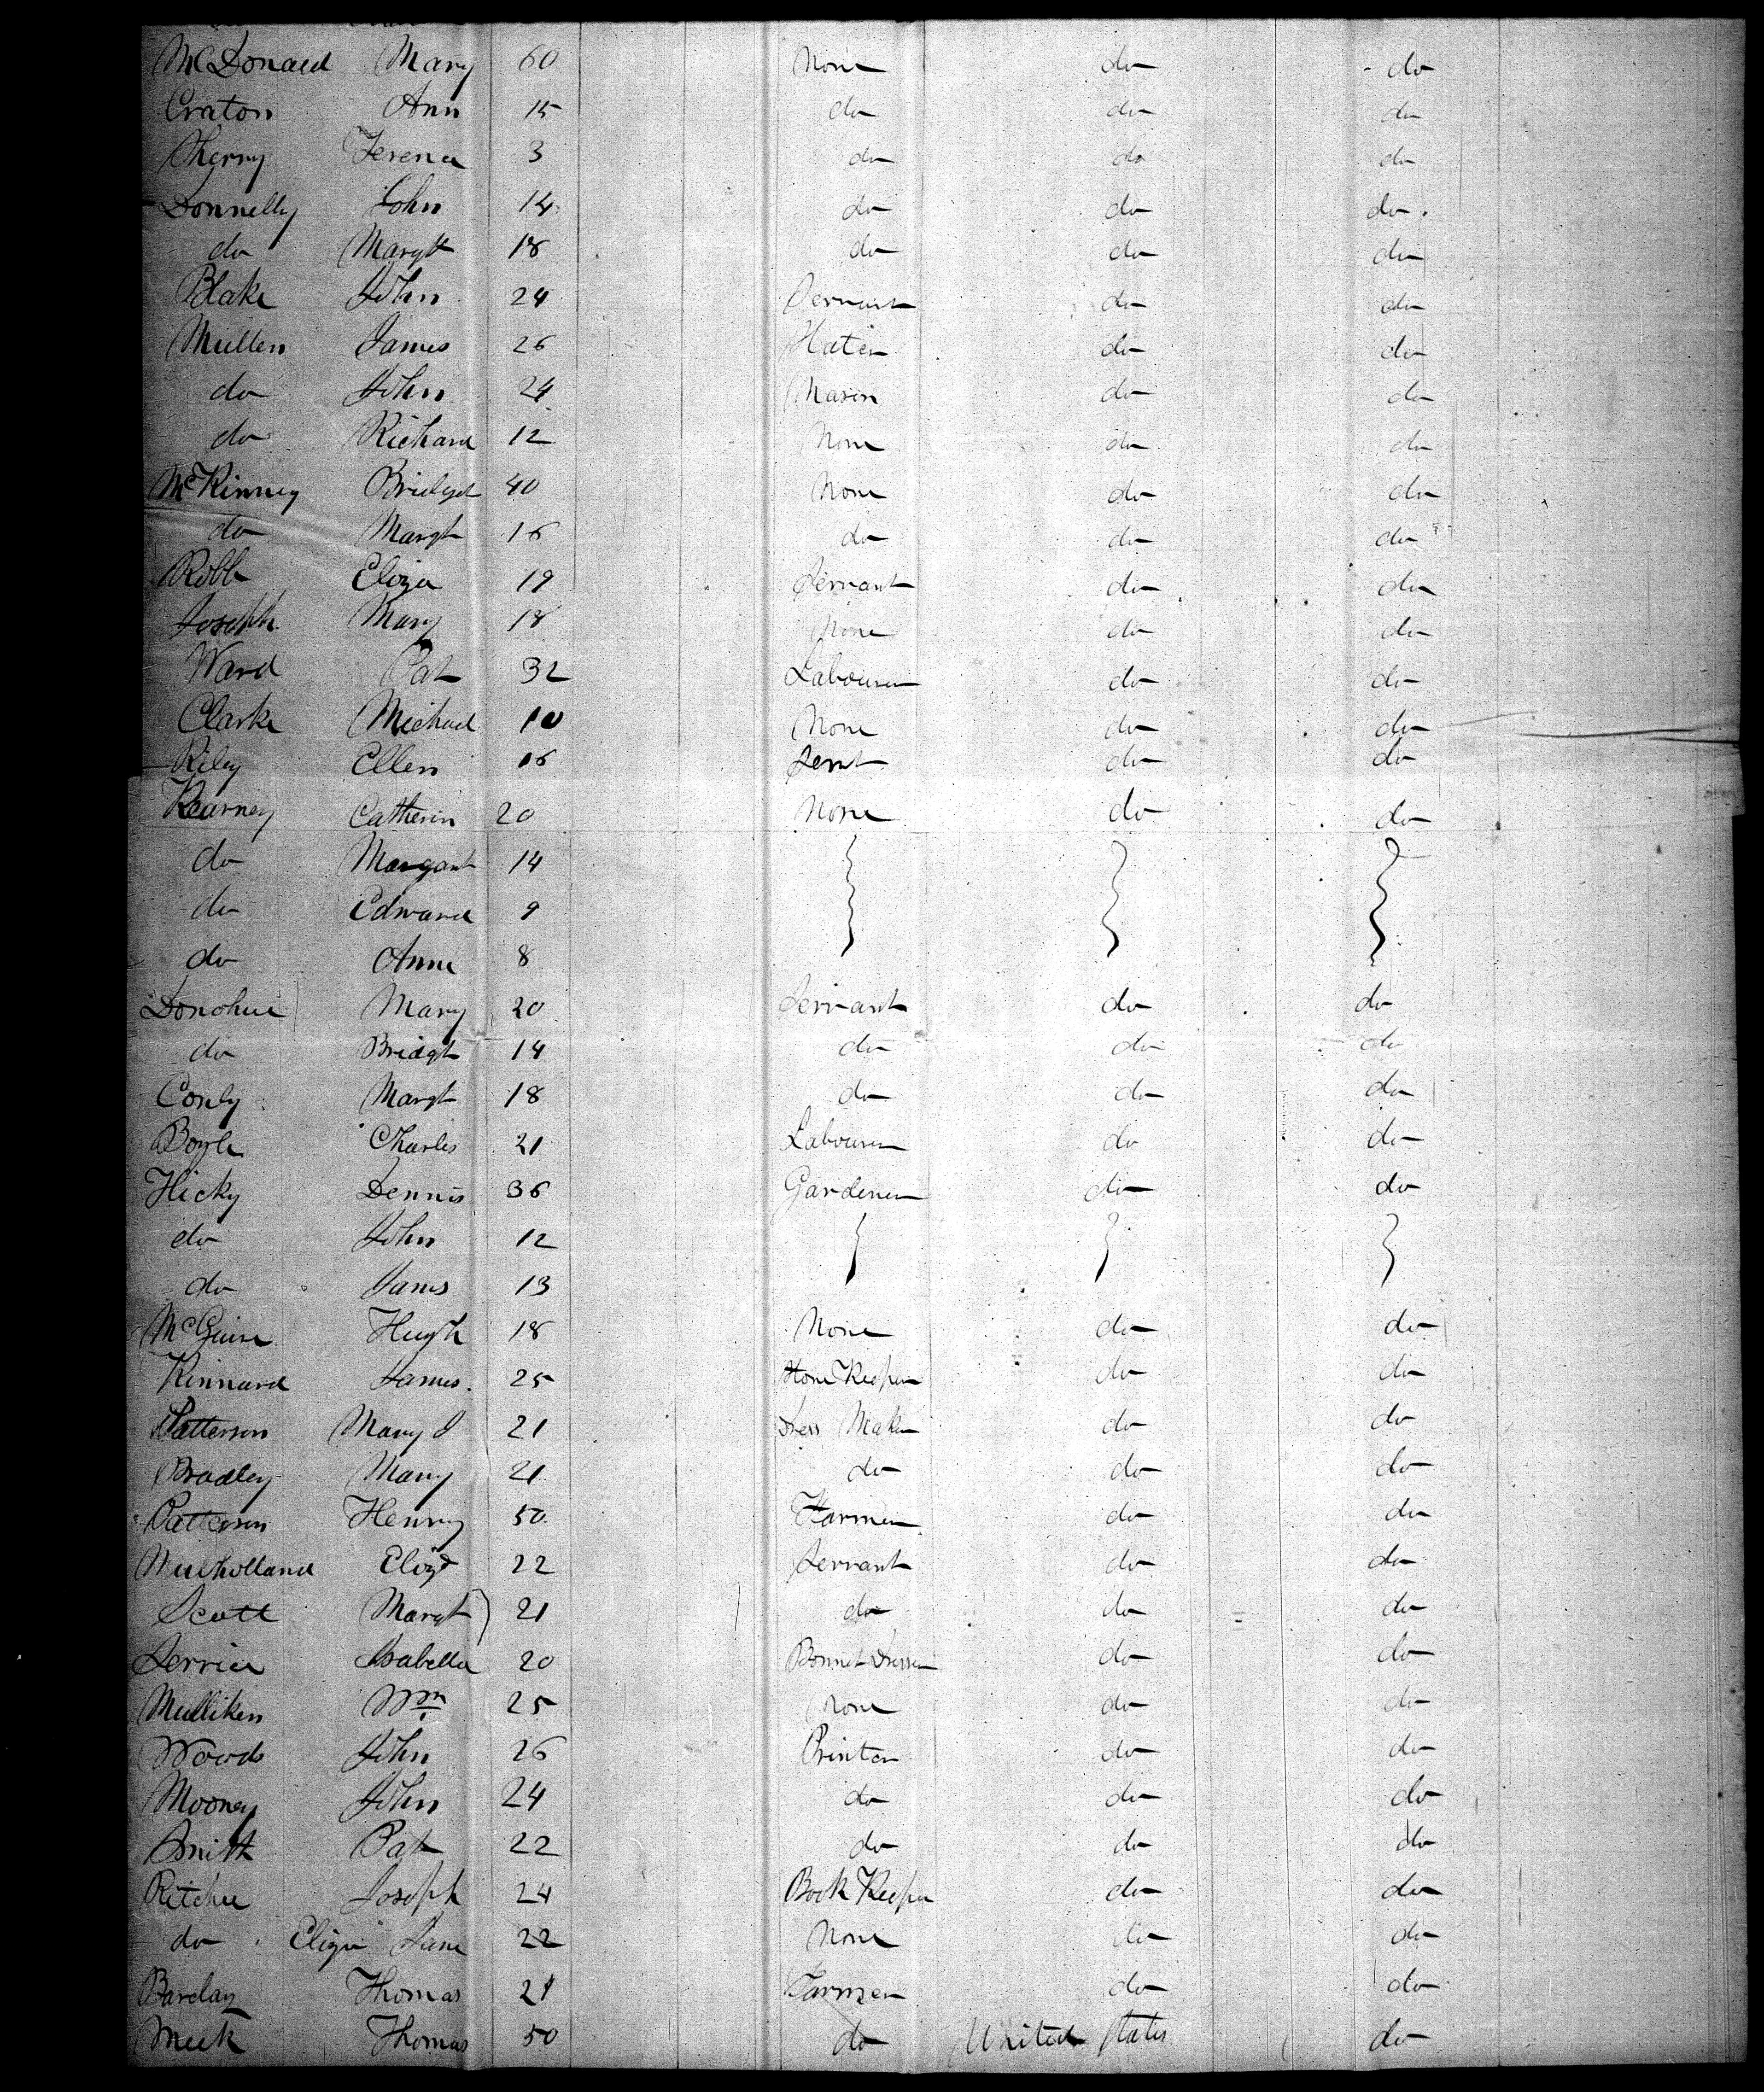 McDonald Mary 60 None do do
Craton Ann 15 do do do
Sherry 3 do do do
Donnelly John 14 do do do
do Margt 18 do do do
Blake John 24 Servant do do
Mullen James 26 do do
do John 24 Mason do do
do Richard 12 None do do
McKinney Bridget 40 None do do
do Margt 16 do do do
Robb Eliza 19 Servant do do
Joseph Mary 18 None do do
Ward Pat 32 Labourer do do
Clarke Michael 10 None do do
Riley Ellen 16 Servt do do
Kearney Catherin 20 None do do
do Margaret 14
do Edward 9
do Anne 8
Donohue Mary 20 Servant do do
do Bridgt 14 do do do
Conly Margt 18 do do do
Boyle Charles 21 Labourer do do
Hicky Dennis 36 Gardener do do
do John 12
do James 13
McGuire Hugh 18 None do do
Kinnard James 25 Keeper do do
Patterson Mary J 21 Dress Maker do do
Bradley Mary 21 do do do
Patterson Henry 50 Farmer do do
Mulholland Elizt 22 Servant do do
Scott Margt 21 do do do
Isabella 20 Bonnet Dresser do do
Mulliken Wm 25 None do do
Woods John 26 Printer do do
Mooney John 24 do do do
Smith Pat 22 do do do
Ritchie Joseph 24 Book Keeper do do
do Eliza Jane 22 None do do
Barclay Thomas 21 Farmer do do
Meek Thomas 50 do United States do